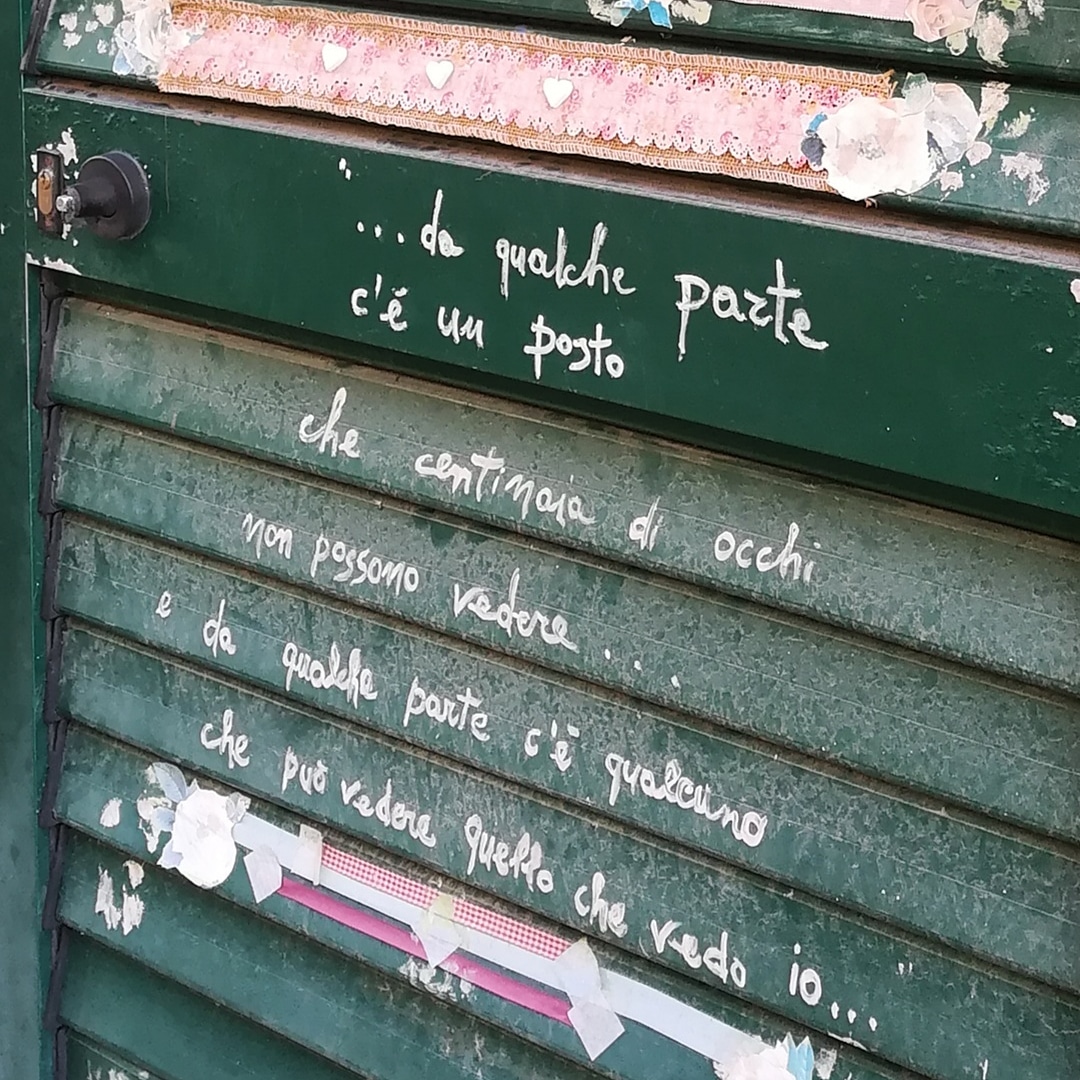 ...da qualche parte
c'è un posto
che centinaia di occhi
non possono vedere...
e da qualche parte c'è qualcuno
che può vedere quello che vedo io...